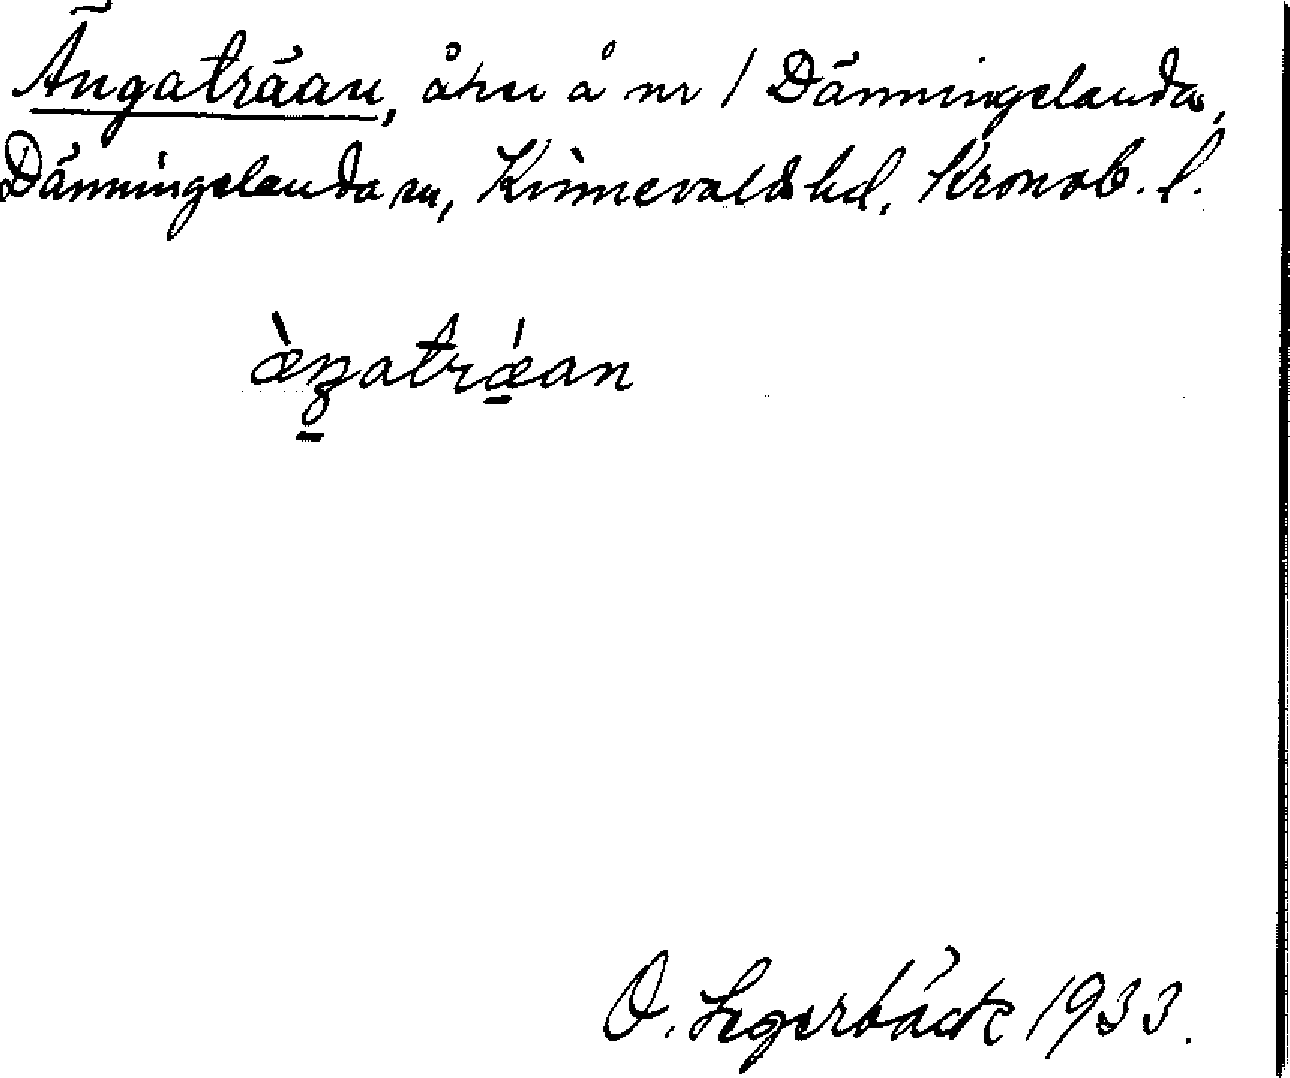 Ängaträan, åker å nr 1 Dänningelanda,
Dänningelanda sn, Kinnevalds hd, Kronob. l.
æ̀ŋatrǽan
O. Segerbäck 1933.